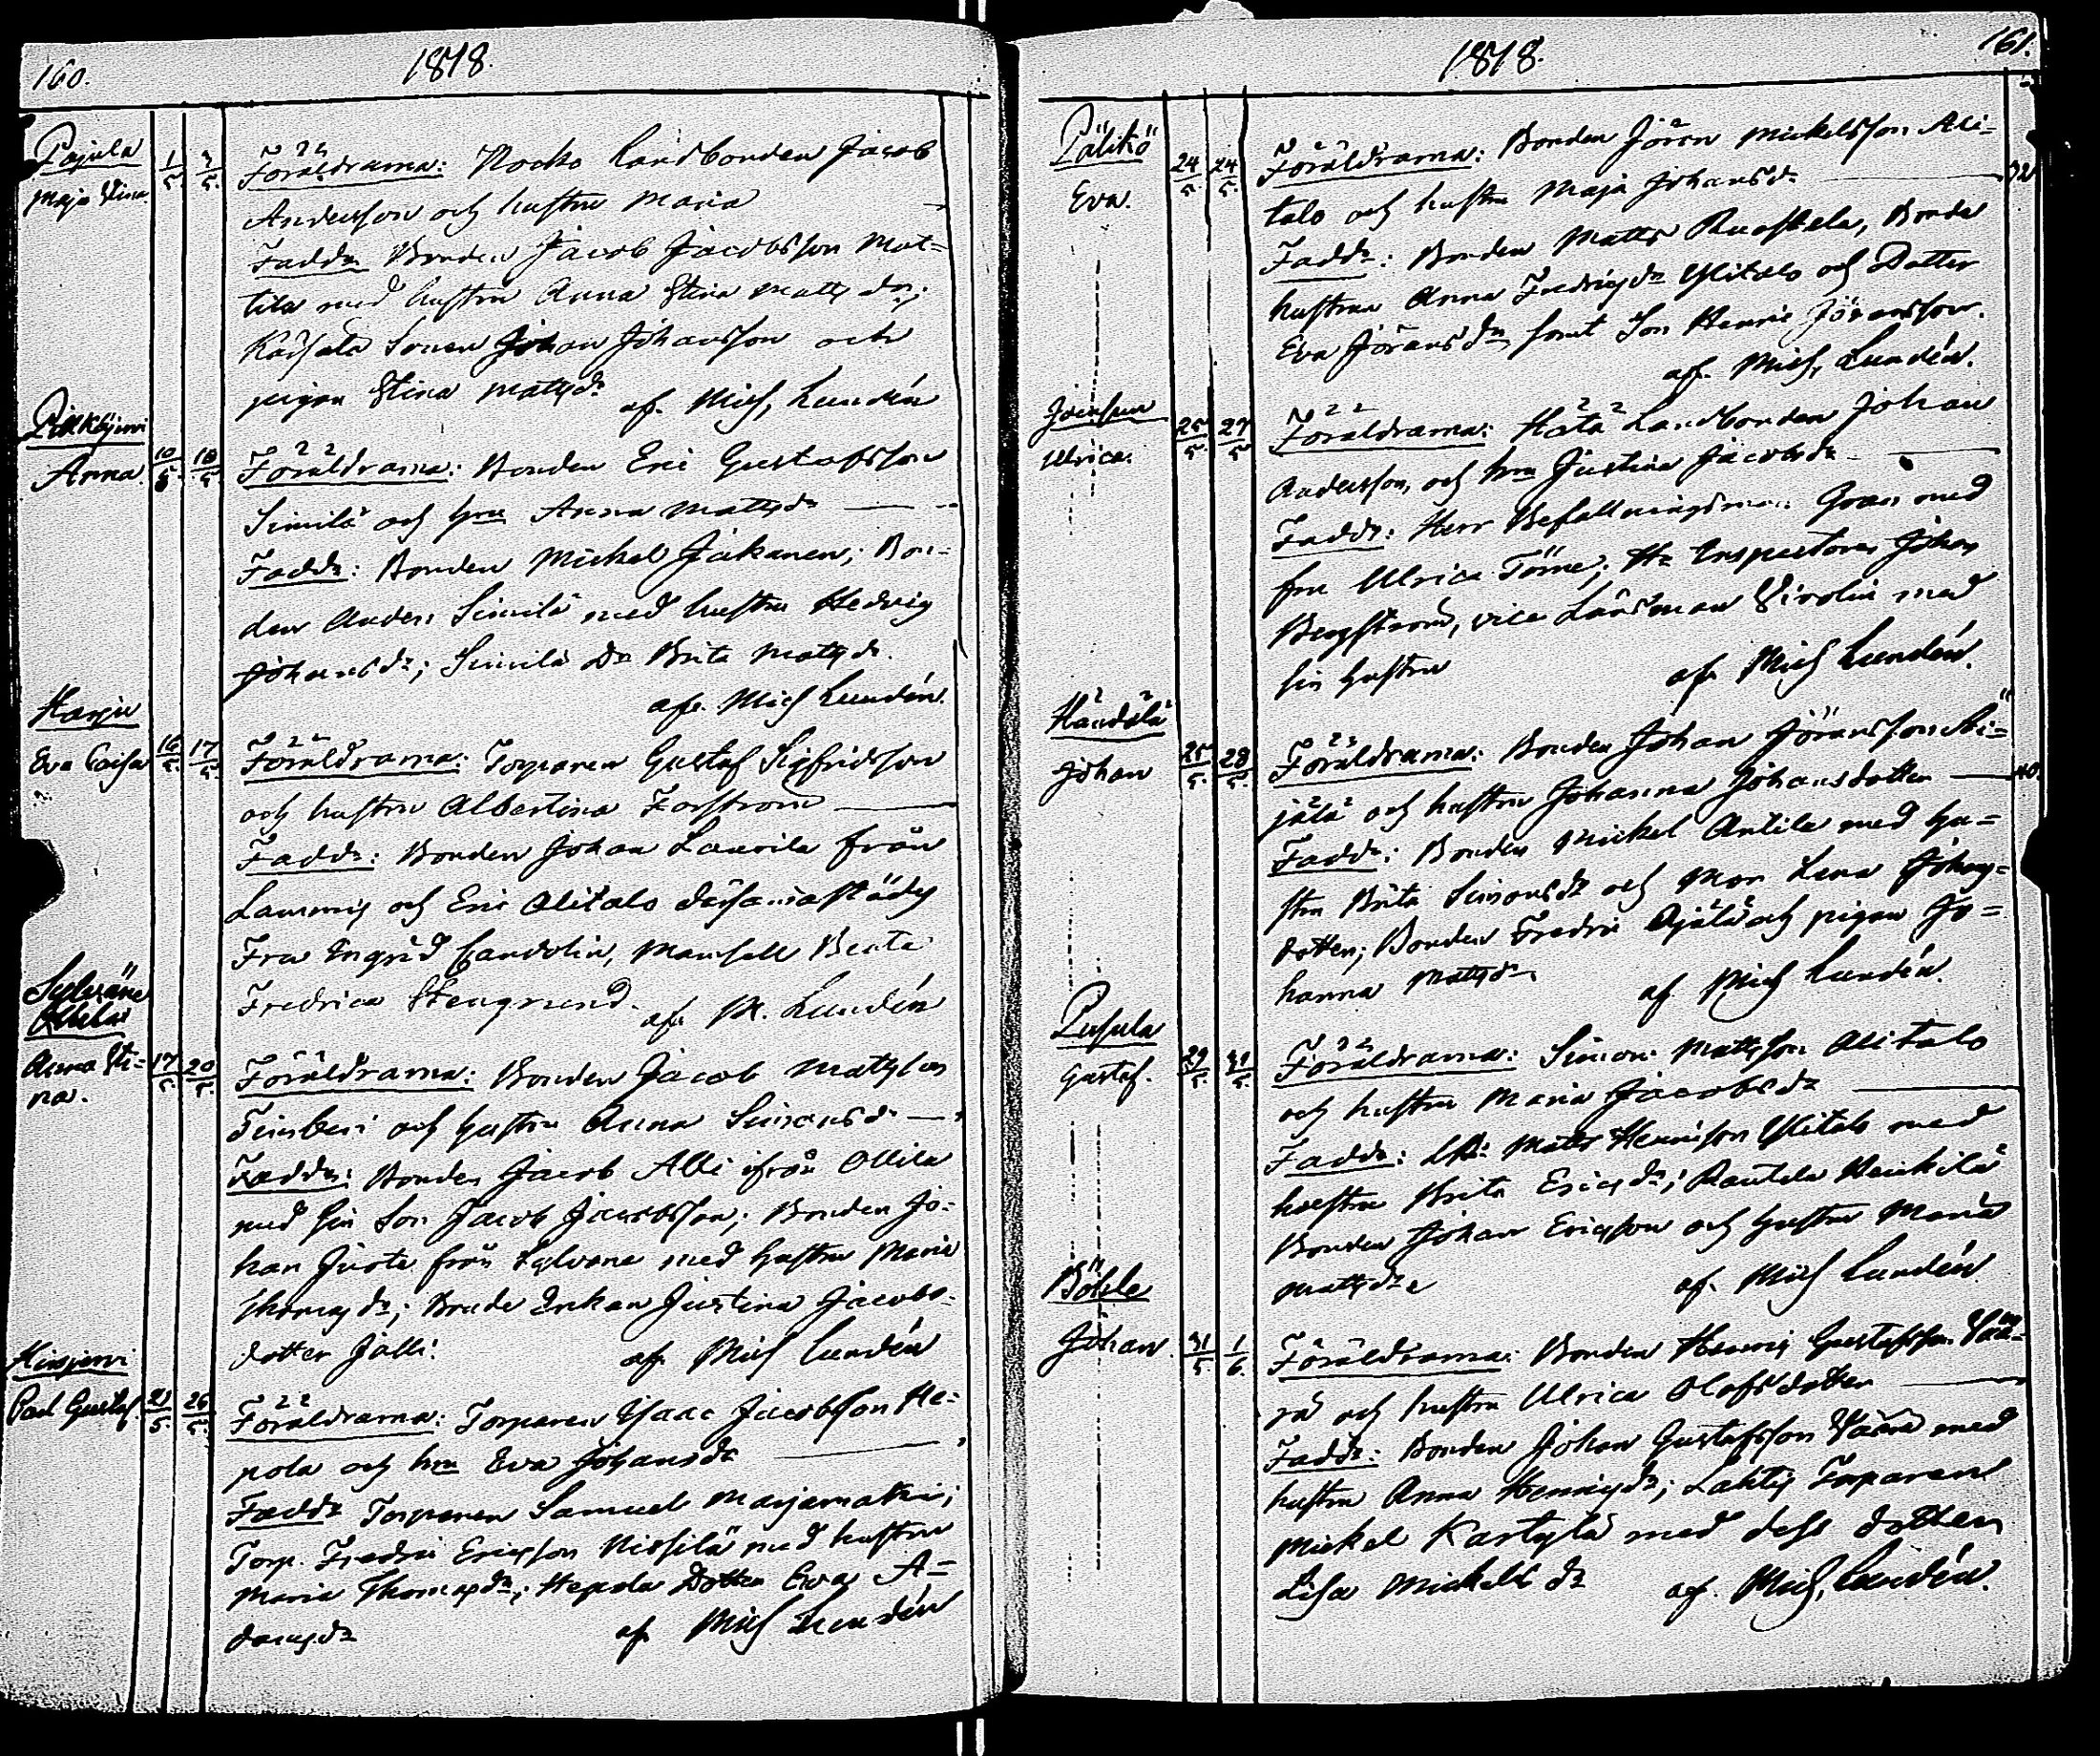 160.
1818.
Pajula
Maja Stina
1/5. 3/5.
Föräldrarna: Nocko Landbonden Jacob
Andersson och hustru Maria
Faddr: Bonden Jacob Jacobsson Mat-
tila med hustru Anna Stina Mattsdr;
Sonen Johan Johansson och
pigan Stina Mattsdr af Mich, Lundén
Pilkkijerwi
Anna
10/5. 10/5
Föräldrarna: Bonden Eric Gustafsson
Similä och hru Anna Mattsdr
Faddr: Bonden Mickel Jakanen; Bon-
den Anders Similä med hustru Hedvig
Johansdr; Similä Dr Brita Mattsdr.
af. Mich Lundén.
Harju
Eva Caisa
16/5. 17/5.
Föräldrarna: Torparen Gustaf Sigfridsson
och hustru Albertina Forsstrom
Faddr: Bonden Johan Laurila från
och Eric Alitalo
Fru Ingrid Candolin, Mamsell Beata
Fredrica Stengrund. af. M. Lundén
Sylväne
Anna Sti-
na.
17/5 20/5.
Föräldrarna: Bonden Jacob Mattsson
och hustru Anna Simonsdr
Faddr: Bonden Jacob Alli ifrån Ollila
med sin Son Jacob Jacobsson; Bonden Jo-
han Juota från Sylvane med hustru Maria
Thomasdr; Enkan Justina Jacobs-
dotter Jalli. af. Mich Lundén
Kirsjerwi
Carl Gustaf
21/5. 26/5.
Föräldrarna: Torparen Isaac Jacobsson He-
pola och hru Eva Johansdr
Faddr Torparen Samuel Marjamaki;
Torp. Fredric Ericsson Nissilä med hustru
Maria Thomasdr; Hepola Dotter Eva A-
damsdr af. Mich Lundén
161.
1818.
Pälikö
Eva.
24/5. 24/5.
Föräldrarna: Bonden Jören Mickelsson Ali-
talo och hustru Maja Johansdr 32
Faddr: Bonden Matts Ruoskela, Bonde
hustrun Anna Fredricsdr Ylitalo och Dotter
Eva Jöransdr samt Son Henric Jöransson.
af. Mich, Lundén.
Joensuu
Ulrica.
25/5. 27/5
Föräldrarna: Hätä Landbonden Johan
Andersson, och hru Justina Jacobsdr
Faddr: Herr Befallningsman Gran med
fru Ulrica Törne; Hr Inspectoren Johan
Bergstrom, vice Länsman Sivolin med
sin hustru af. Mich Lundén.
Händälä
Johan
25/5. 28/5.
Föräldrarna: Bonden Johan Jöransson Äi-
jälä och hustru Johanna Johansdotter 40.
Faddr: Bonden Mickel Antila med hu-
stru Brita Simonsdr och Mor Lena Johans-
dotter; Bonden Fredric Äijälä och pigan Jo-
hanna Mattsdr af Mich Lundén.
Pusula
Gustaf.
29/5. 31/5.
Föräldrarna: Simon Mattsson Alitalo
och hustru Maria Jacobsdr
Faddr: Matts Henricsson Ylitalo med
hustru Brita Ericsdr; Rautela Heickilä
Bonden Johan Ericsson och hustru Maria
Mattsdr af. Mich Lundén
Böhle
Johan
31/5. 1/6.
Föräldrarna: Bonden Henric Gustafsson Vää-
rä och hustru Ulrica Olofsdotter
Faddr: Bonden Johan Gustafsson Väärä med
hustru Anna Henricsdr; Lahtis Torparen
Mickel Kartylä med dess dotter
Lisa Mickelsdr af. Mich, Lundén.